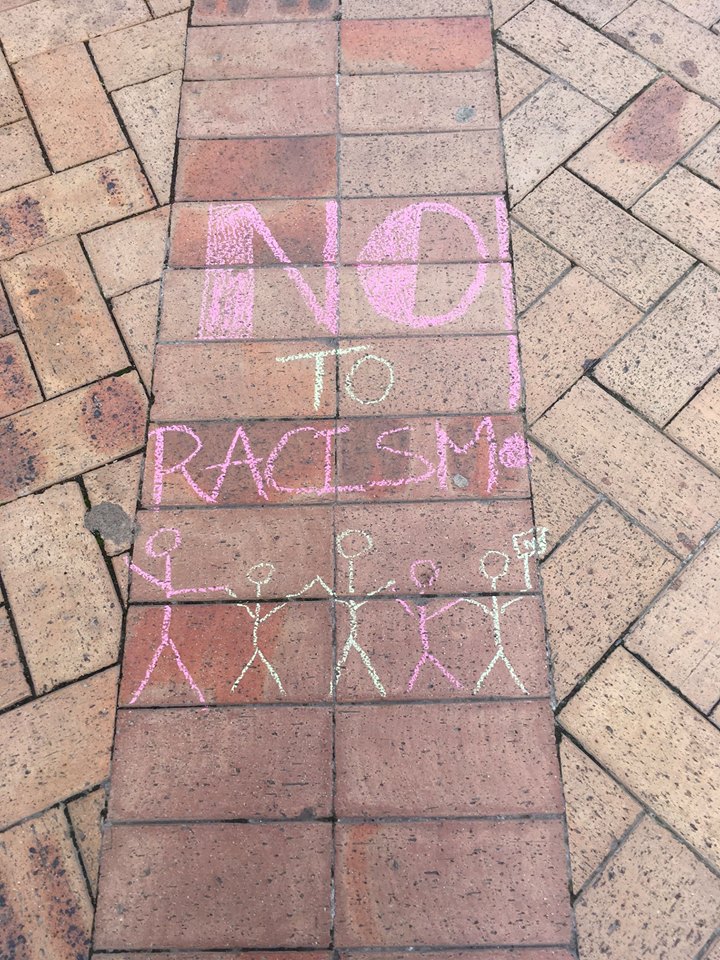 NO
TO
RACISM!